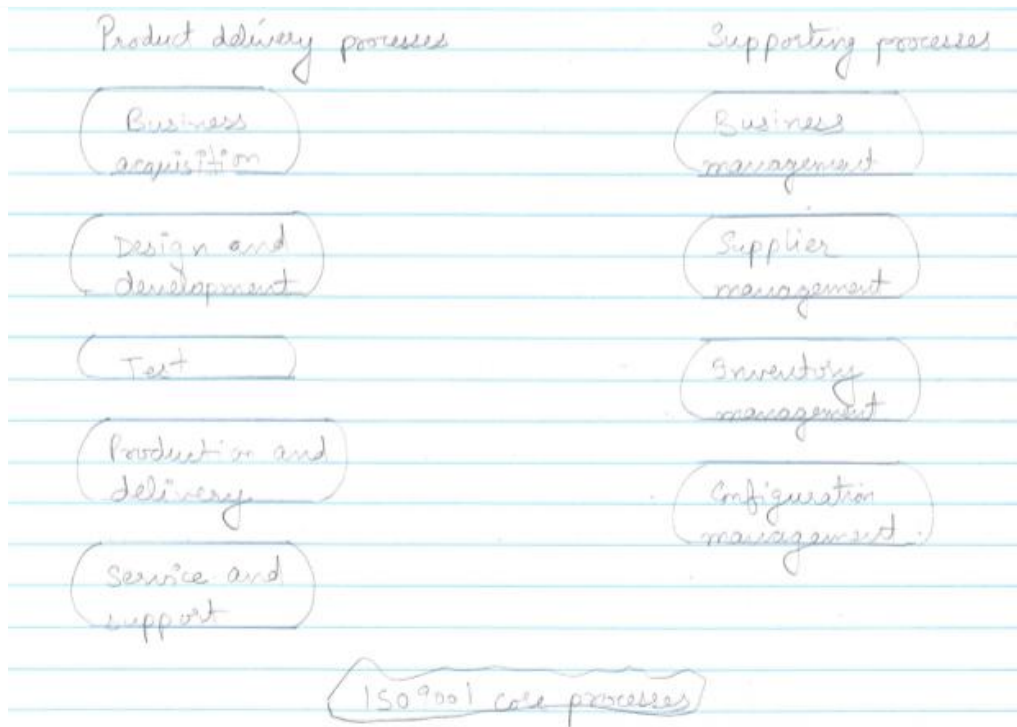 Product delivery processes
Supporting processes
Business
acquisition
Design and
development
Test
Production and
delivery
Service and
support
Business
management
Supplier
management
Inventory
management
Configuration
management
ISO9001 core processes